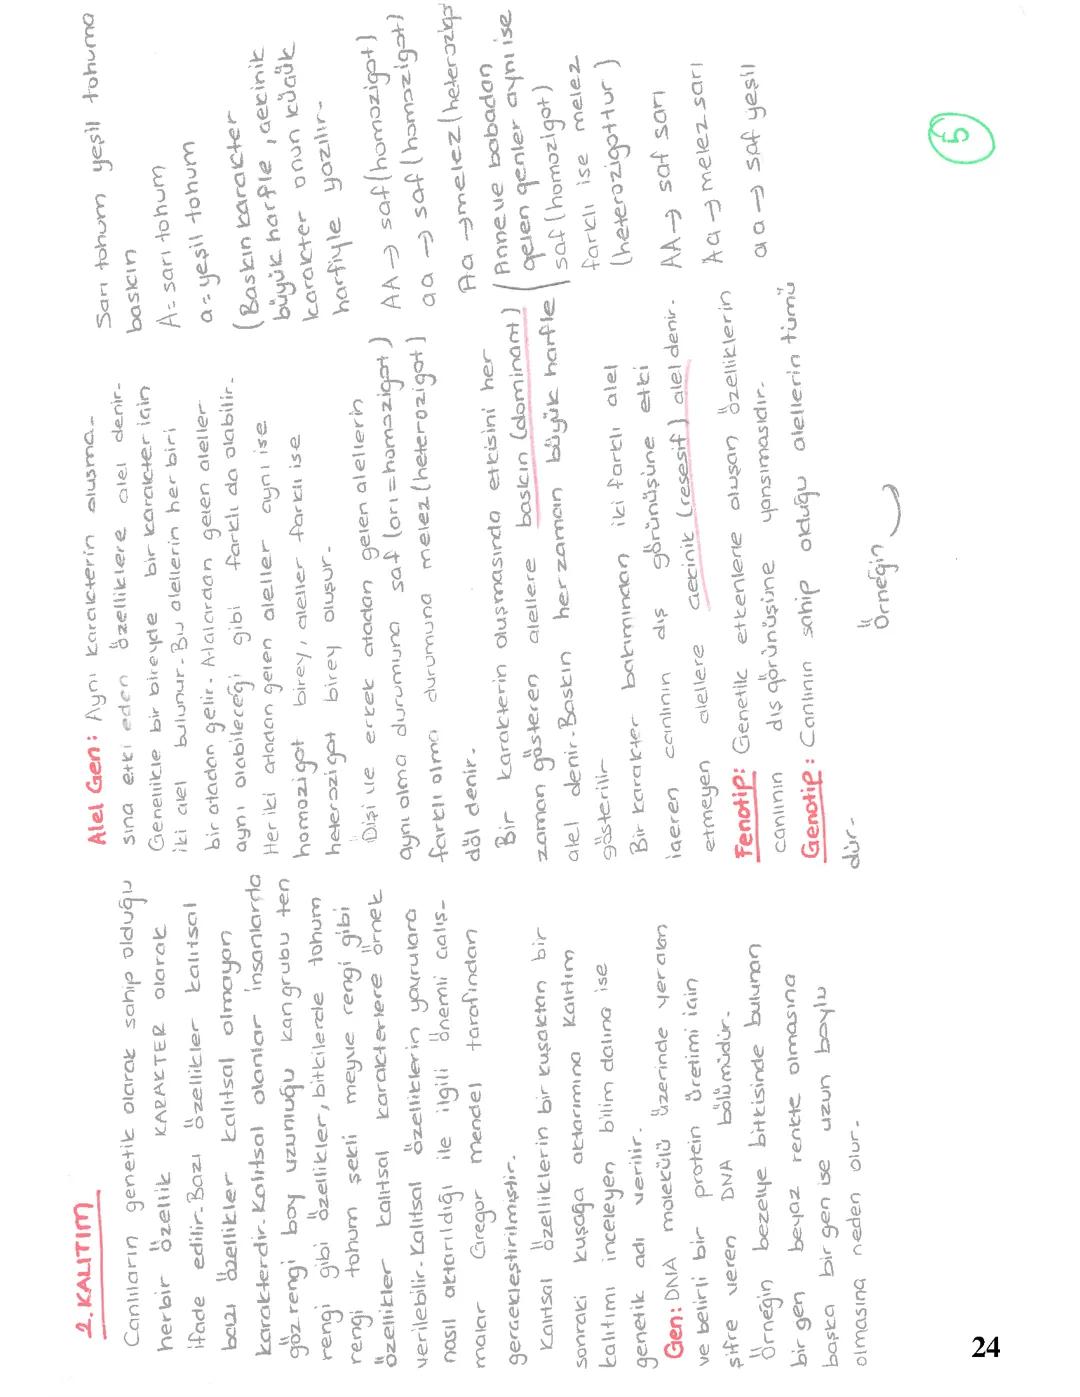 2. KALITIM
Canlıların genetik olarak sahip olduğu
herbir özellik KARAKTER olarak
ifade edilir. Bazı özellikler kalıtsal
bazı özellikler kalıtsal olmayan
karakterdir. Kalıtsal olanlar insanlarda
göz rengi boy uzunluğu kan grubu ten
rengi gibi özellikler, bitkilerde tohum
rengi tohum şekli meyve rengi gibi
özellikler kalıtsal karakterlere örnek
verilebilir. Kalıtsal özelliklerin yavrulara
nasıl aktarıldığı ile ilgili önemli çalış-
malar Gregor mendel tarafından
gerçekleştirilmiştir.
Kalıtsal özelliklerin bir kuşaktan bir
sonraki kuşağa aktarımına kalıtım
kalıtımı inceleyen bilim dalına ise
genetik adı verilir.
Gen: DNA molekülü üzerinde yer alan
ve belirli bir protein üretimi için
şifre veren DNA bölümüdür.
Örneğin bezelye bitkisinde bulunan
bir gen beyaz renkte olmasına
başka bir gen ise uzun boylu
olmasına neden olur.
Alel Gen: Aynı karakterin oluşma-
sına etki eden özelliklere alel denir.
Genellikle bir bireyde bir karakter için
iki alel bulunur. Bu alellerin her biri
bir atadan gelir. Atalardan gelen aleller
aynı olabileceği gibi farklı da olabilir.
Her iki atadan gelen aleller aynı ise
homozigot birey, aleller farklı ise
heterozigot birey oluşur.
Dişi ve erkek atadan gelen alellerin
aynı olma durumuna saf (arı=homozigot)
farklı olma durumuna melez (heterozigot)
döl denir.
Bir karakterin oluşmasında etkisini her
zaman gösteren alellere baskın (dominant)
alel denir. Baskın herzaman büyük harfle
gösterilir
Bir karakter bakımından iki farklı alel
içeren canlının dış görünüşüne etki
etmeyen alellere çekinik (resesif) alel denir.
Fenotip: Genetik etkenlerle oluşan özelliklerin
canlının dış görünüşüne yansımasıdır.
Genotip: Canlının sahip olduğu alellerin tümü
dür.
Örneğin
Sarı tohum yeşil tohuma
baskın
A= sarı tohum
a= yeşil tohum
(Baskın karakter
büyük harfle, çekinik
karakter onun küçük
harfiyle yazılır.
AA → saf (homozigot)
aa → saf (homozigot)
Aa → melez (heterozigot
(Anne ve babadan
gelen genler aynı ise
saf (homozigot)
farklı ise melez
(heterozigottur)
AA → saf sarı
Aa → melez sarı
aa → saf yeşil
5
24